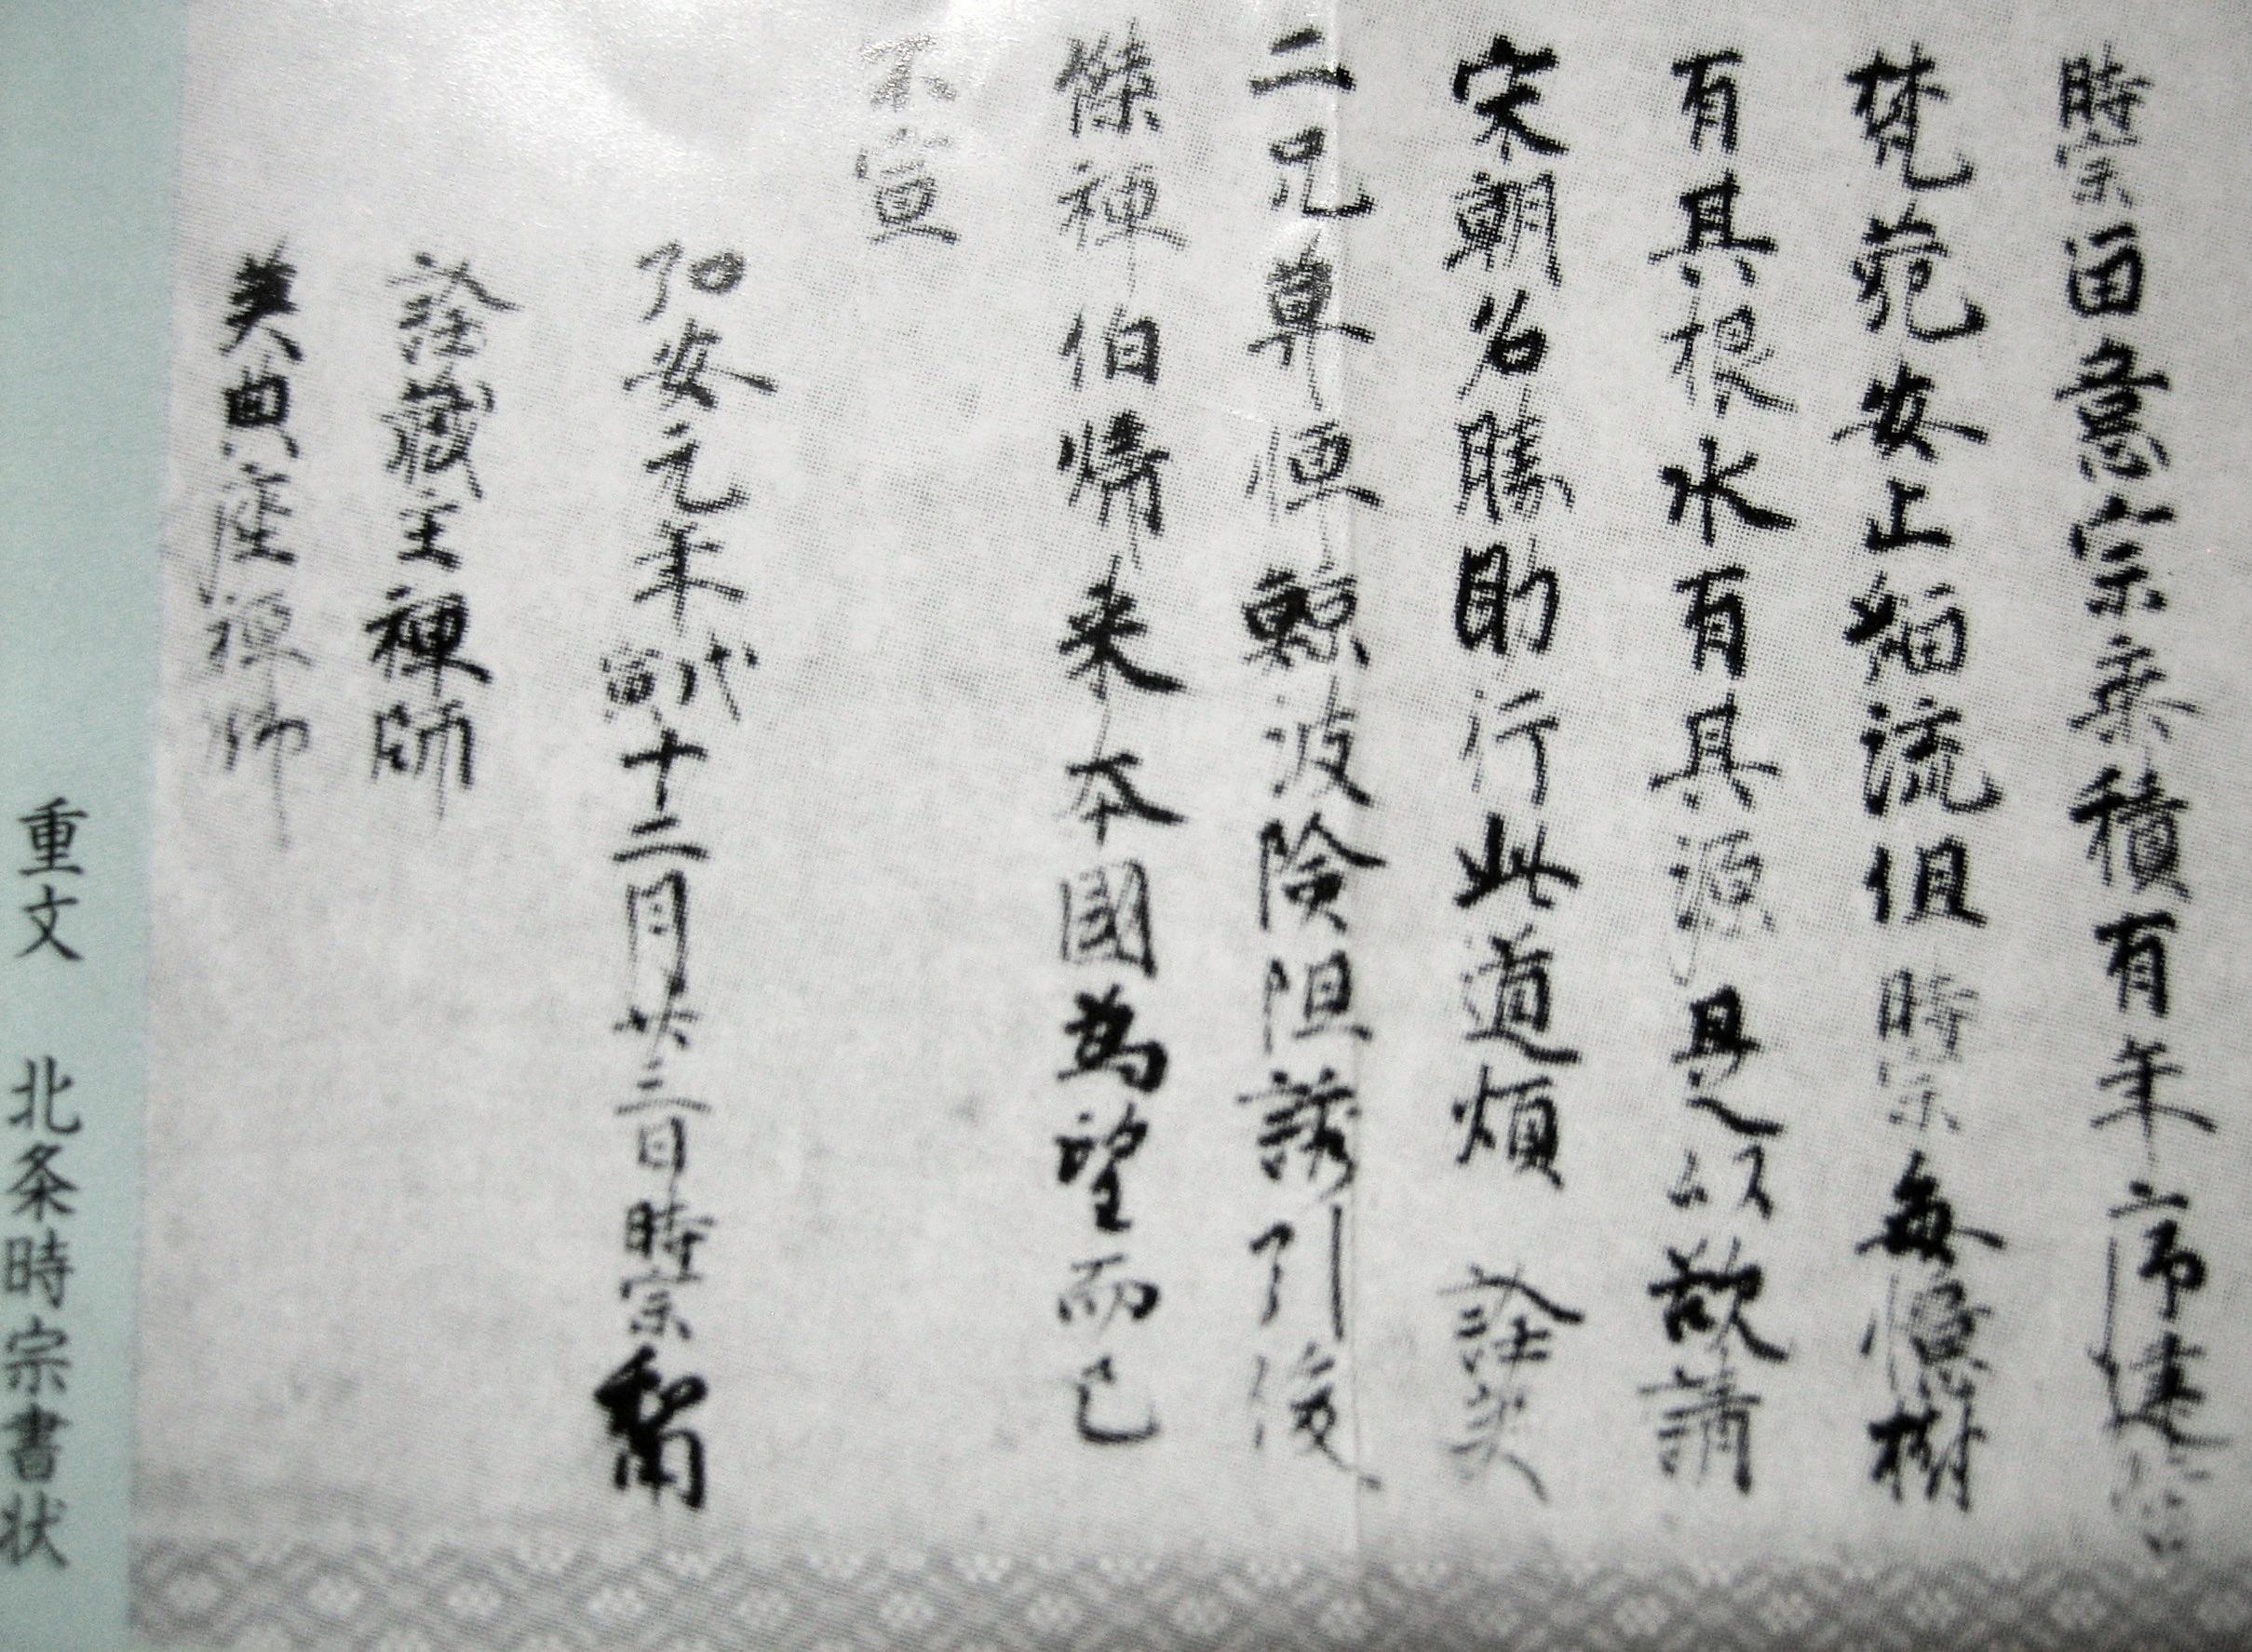 時宗留意宗乗積有年序建営
梵苑安止緇流但時宗毎憶樹
有其根水有其源是以欲請
宋朝名勝助行此道煩 詮英
二兄莫憚鯨波険阻誘引俊
傑禅伯帰来本國為望而已
不宣
弘安元年戊寅十二月廿三日時宗
詮蔵主禅師
英典座禅師
重文 北条時宗書状